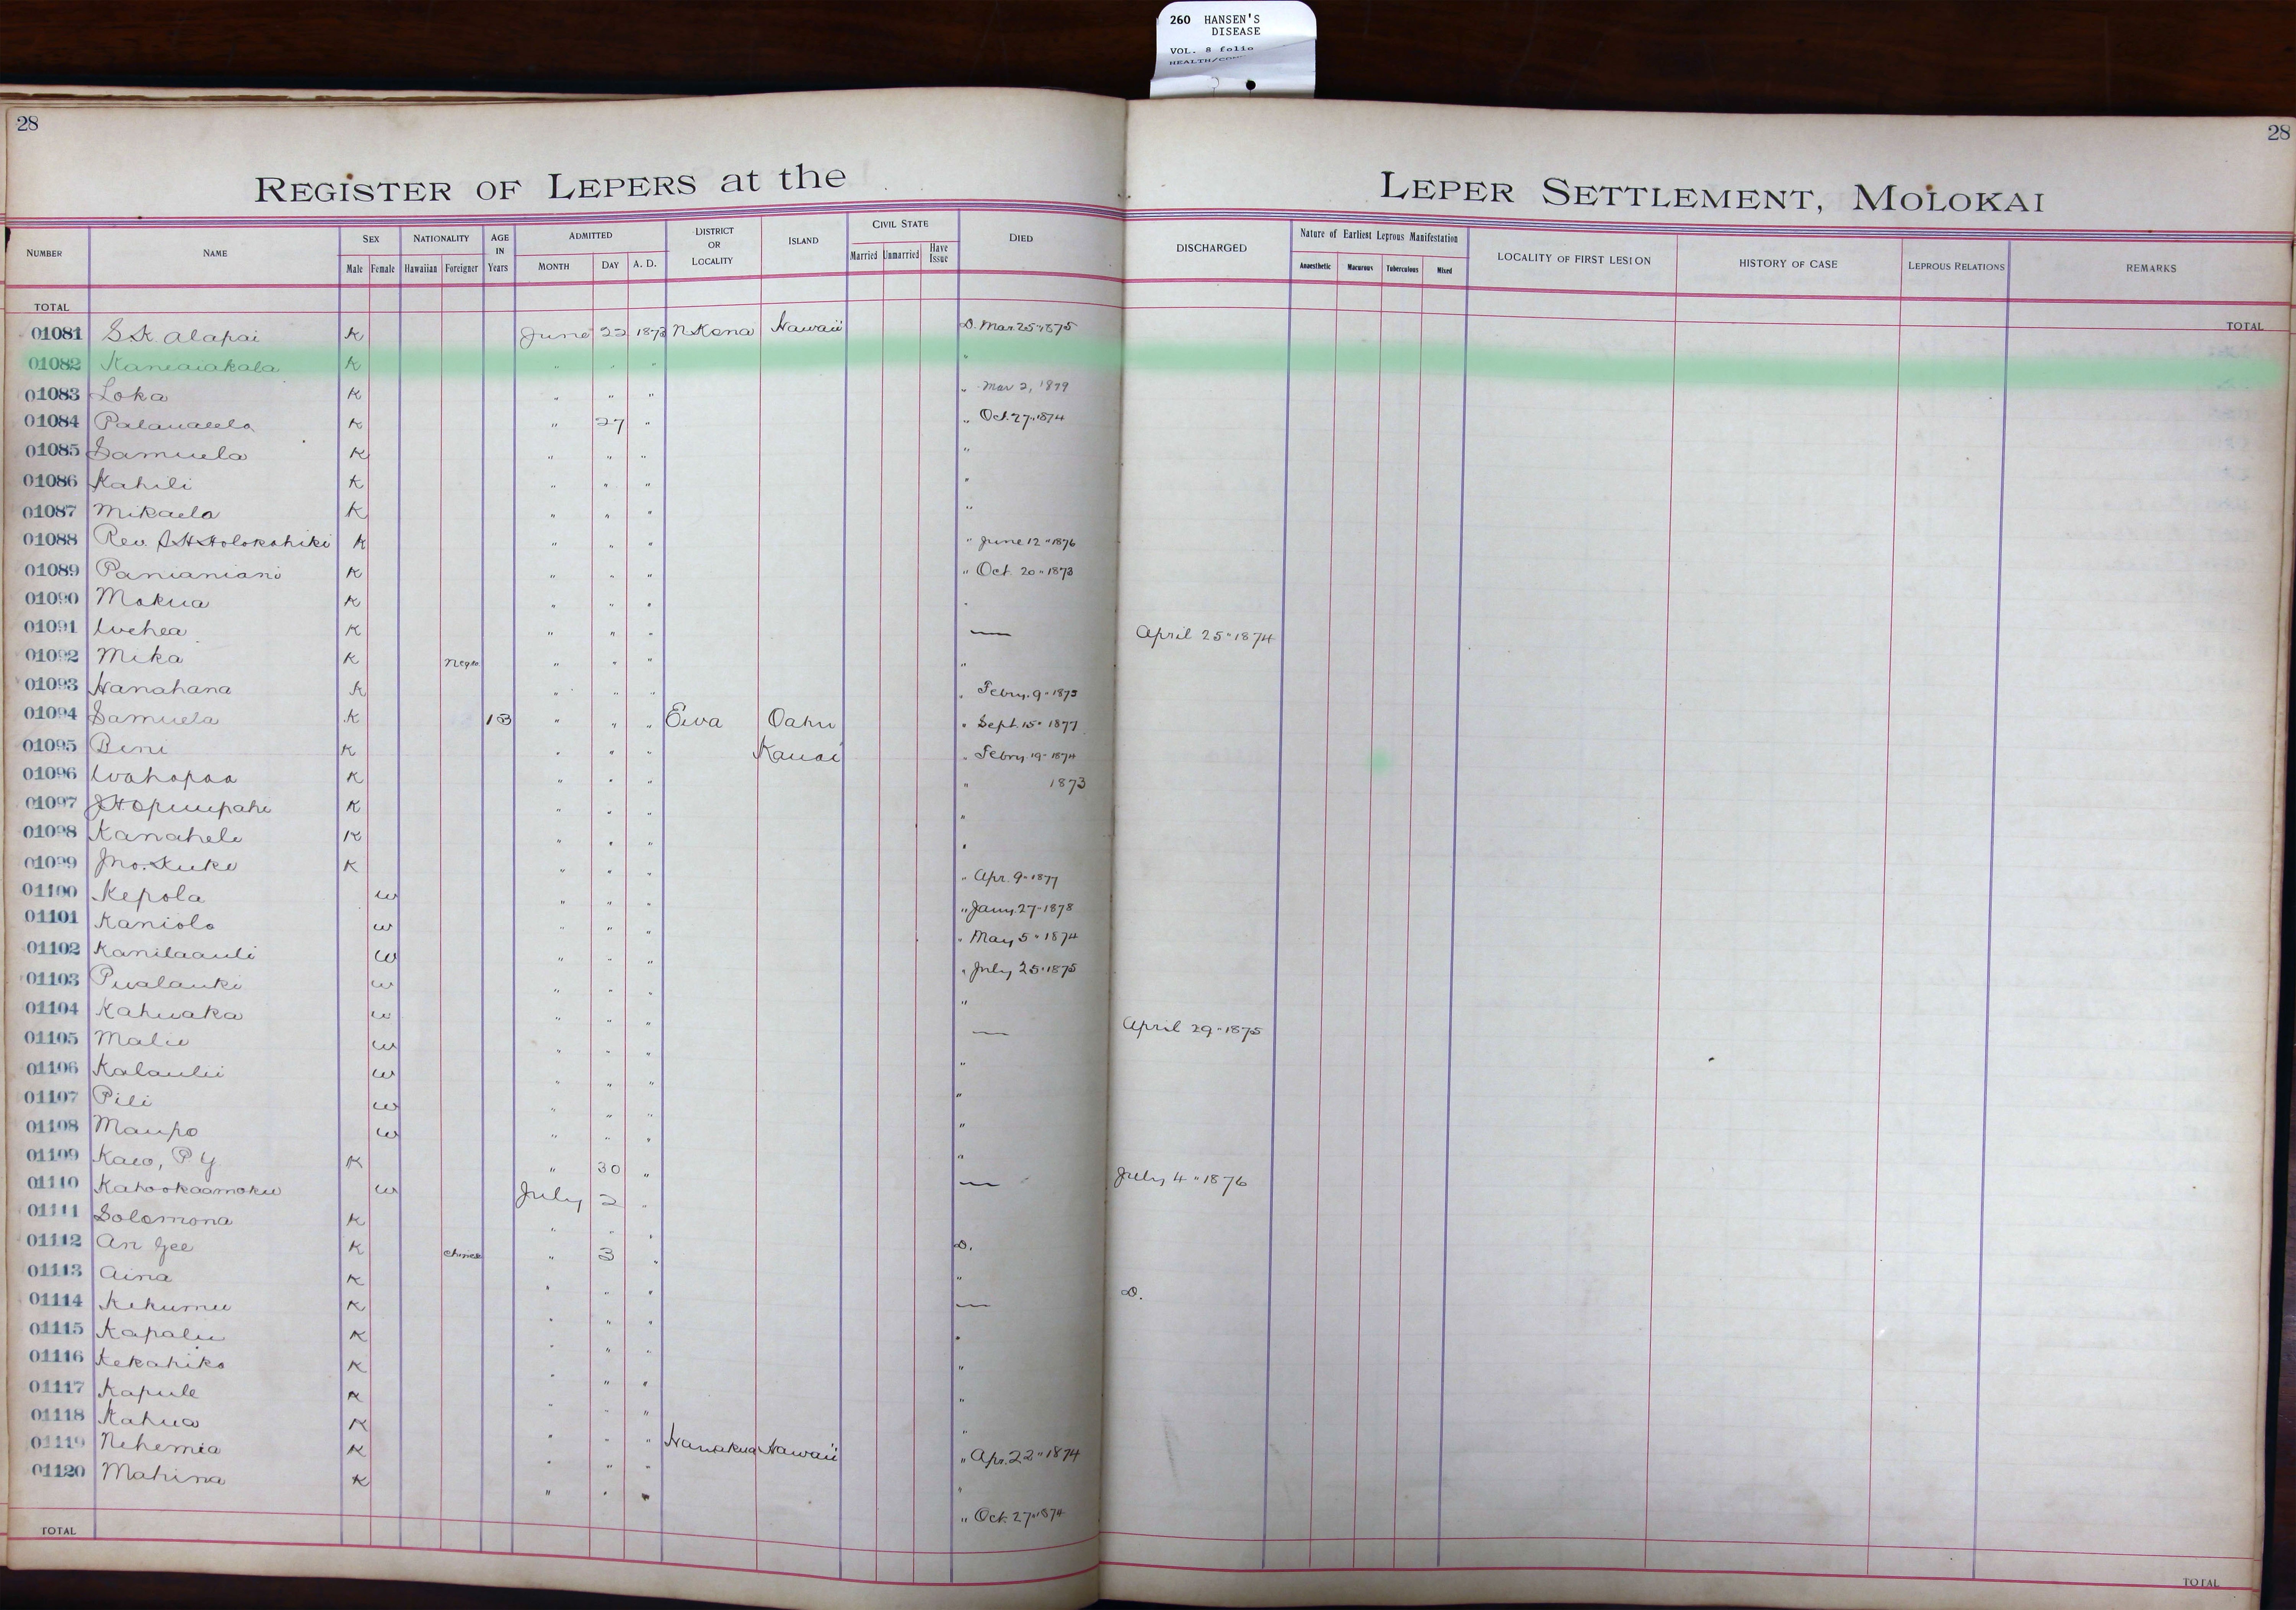 260 HANSEN'S
DISEASE
VOL. 8 folio
28
28
REGISTER OF LEPERS at the LEPER SETTLEMENT, MOLOKAI
NUMBER NAME SEX NATIONALITY AGE IN Years ADMITTED DISTRICT OR LOCALITY ISLAND CIVIL STATE DIED DISCHARGED Nature of Earliest Leprous Manifestation LOCALITY OF FIRST LESION HISTORY OF CASE LEPROUS RELATIONS REMARKS
Male Female Hawaiian Foreigner MONTH DAY A. D. Married Unmarried Have Issue Anaesthetic Macurous Tuberculous Mixed
TOTAL TOTAL
01081 S.K. Alapai K June 22 1873 N Kona Hawaii D. Mar. 25 " 1875
01082 Kaneaiakala K " " " "
01083 Loka K " " " " Mar 2, 1879
01084 K " 27 " " Oct. 27 " 1874
01085 Samuela K " " " "
01086 Kahili K " " " "
01087 Mikaela K " " " "
01088 Rev. S H Holokahiki K " " " " June 12 " 1876
01089 Panianiani K " " " " Oct. 20 " 1873
01090 Mokua K " " " "
01091 Wehea K " " " — April 25 " 1874
01092 Mika K Negro " " " "
01093 Hanahana K " " " " Febry. 9 "
01094 Samuela K 13 " " " Ewa Oahu " Sept. 15 " 1877
01095 Beni K " " " Kauai " Febry 19 " 1874
01096 Wahapaa K " " " " 1873
01097 J.H. Opuupahi K " " " "
01098 Kanahele K " " " "
01099 Jno. Kuke K " " " " Apr. 9 " 1877
01100 Kepola w " " " " Jany. 27 " 1878
01101 Kaniolo w " " " " May 5 " 1874
01102 Kanilaauli w " " " " July 25 " 1875
01103 Pualauki w " " " "
01104 Kahuaka w " " " — April 29 " 1875
01105 Malie w " " " "
01106 Kalaulii w " " " "
01107 Pili w " " " "
01108 Maupo w " " " "
01109 Kaeo, P Y K " 30 " — July 4 " 1876
01110 Kahookaamoku w July 2 "
01111 Solomona K " " " D.
01112 An Gee K Chinese " 3 " "
01113 Aina K " " " — D.
01114 Kekumu K " " " "
01115 Kapalu K " " " "
01116 Kekahiko K " " " "
01117 Kapule K " " " "
01118 Kahua K " " " Hamakua Hawaii " Apr. 22 " 1874
01119 Nehemia K " " " "
01120 Mahina K " " " " Oct. 27 " 1874
TOTAL TOTAL